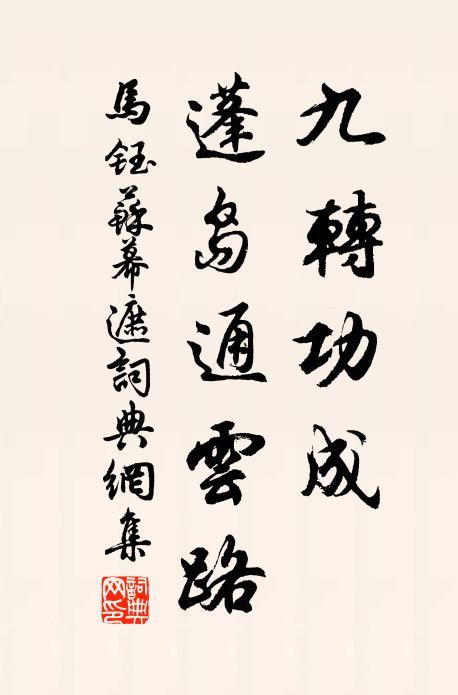 九轉功成
蓬島通雲路
馬鈺蘇幕遮詞典網集
詞典网印